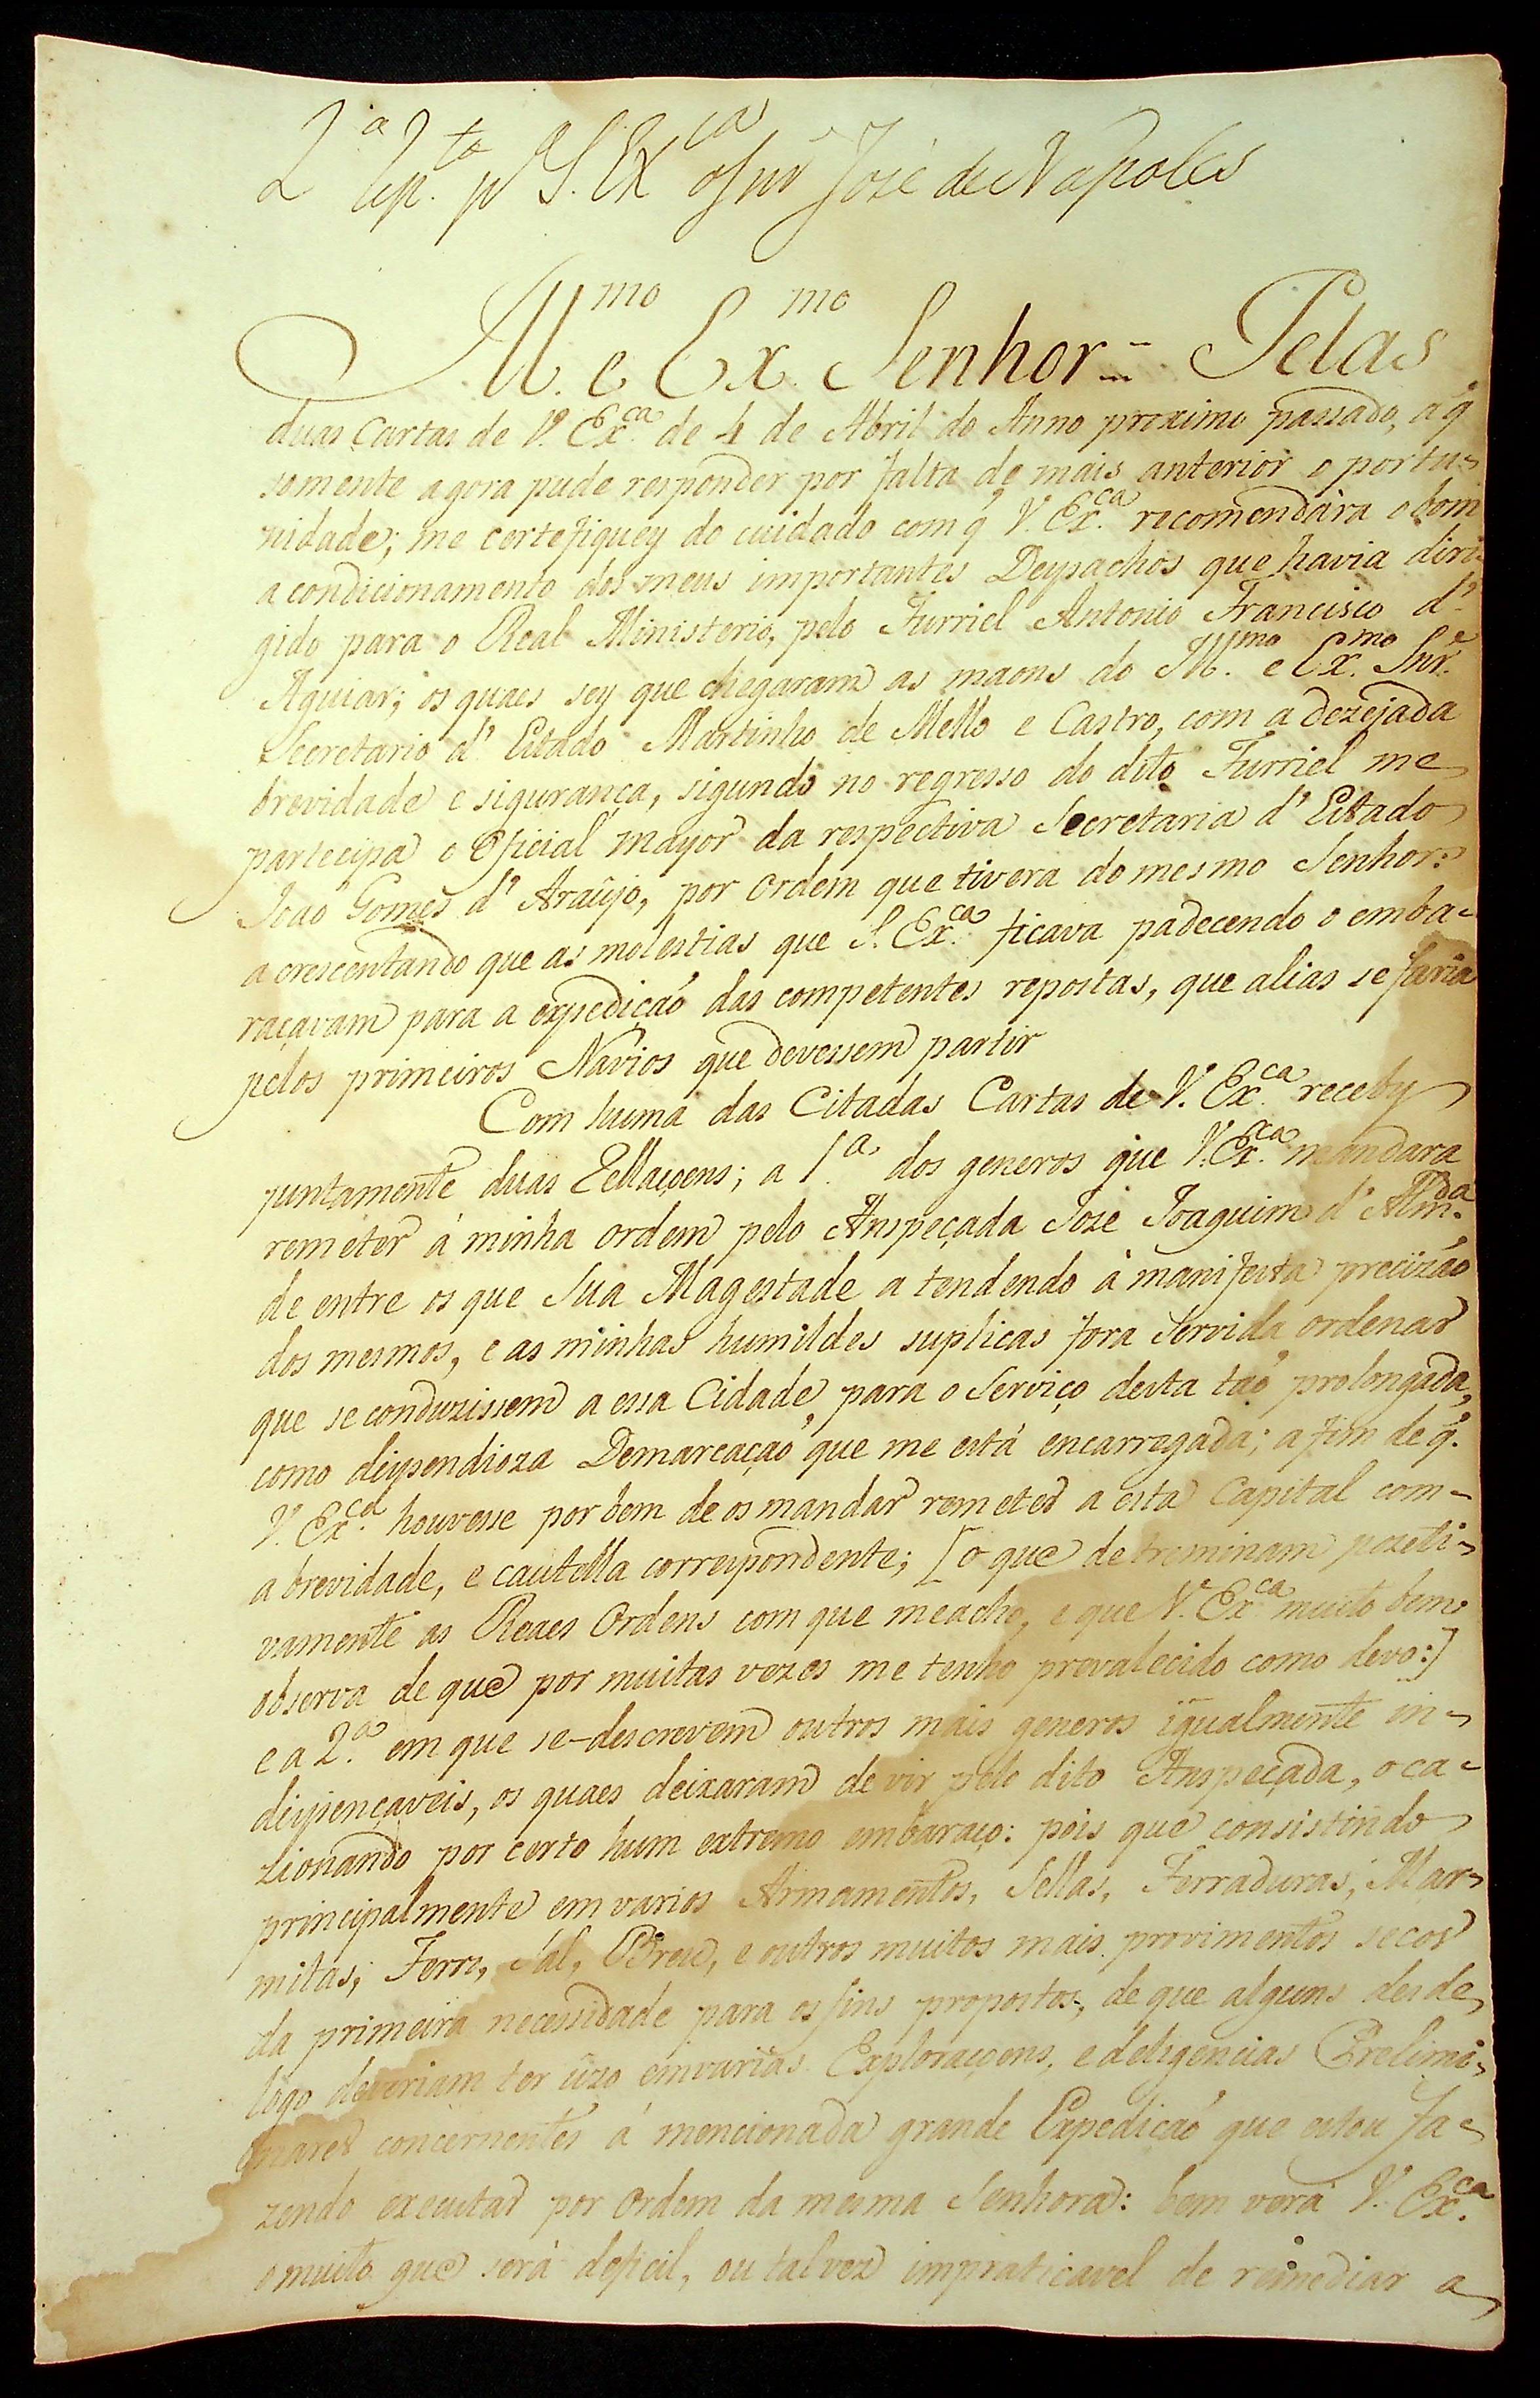 2.ª Rp.ta p.ª S. Ex.ca o Snr José de Napoles
Ill.mo e Ex.mo Senhor = Pelas
duas Cartas de V. Ex.ca de 4 de Abril do Anno proximo passado, a q̃
somente agora pude responder por falta de mais anterior o portu-
nidade; me certefiquey do cuidado com q̃ V. Ex.ca recomendára o bom
a condicionamento dos meus importantes Despachos que havia diri-
gido para o Real Ministerio, pelo Furriel Antonio Francisco d'
Aguiar; os quaes sey que chegaram as maons do Ill.mo e Ex.mo Snr.
Secretario d' Estado Martinho de Mello e Castro, com a dezejada
brevidade e sigurança, sigundo no regresso do dito Furriel me
partecipa o Oficial mayor da respectiva Secretaria d' Estado
Joaõ Gomes d' Araûjo, por ordem que tivera do mesmo Senhor:
acrescentando que as molestias que S. Ex.ca ficava padecendo o emba-
raçavam para a expediçaõ das competentes repostas, que alias se faria
pelos primeiros Navios que devessem partir
Com huma das Citadas Cartas de V. Ex.ca receby
juntamente duas Rellaçoens; a 1.ª dos generos que V. Ex.ca mandara
remeter á minha ordem pelo Anspeçada Joze Joaquim d' Alm.da
de entre os que Sua Magestade a tendendo à manifesta precizaõ
dos mesmos, e as minhas humildes suplicas fora Servida ordenar
que se conduzissem a essa Cidade, para o Serviço desta taõ prolongada,
como dispendioza Demarcaçaõ que me está encarregada; a fim de q̃.
V. Ex.ca houvesse por bem de os mandar remeter a esta Capital com-
a brevidade, e cautella correspondente; [o que detreminam pozeti-
vamente as Reaes Ordens com que me acho, e que V. Ex.ca muito bem
observa de que por muitas vezes me tenho prevalecido como devo:]
e a 2.ª em que se-descrevem outros mais generos igualmente in-
dispençaveis, os quaes deixaram de vir pelo dito Anspeçada, o ca-
zionando por certo hum extremo embaraço: pois que consistindo
principalmente em varios Armamentos, Sellas, Ferraduras, Mar-
mitas, Ferro, Sal, Breu, e outros muitos mais provimentos secos
da primeira necessidade para os fins propostos, de que alguns desde
logo deveriam ter ûzo em varias Exploraçoens, e deligencias Prelimi-
nares concernentes á mencionada grande Expediçaõ que estou fa-
zendo executar por ordem da mesma Senhora: bem verá V. Ex.ca
o muito que será deficil, ou talvez impraticavel de remediar a